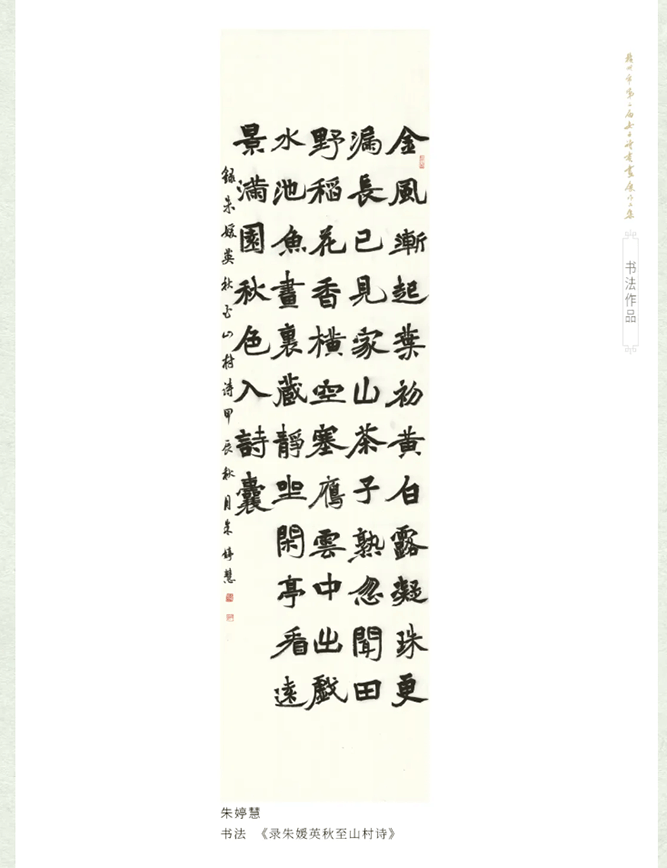 金風漸起葉初黄白露凝珠更
漏長已見家山茶子熟忽聞田
野稻花香横空塞雁雲中出戲
水池魚畫裏藏靜坐閑亭看遠
景滿園秋色入詩囊
録朱媛英秋至山村诗甲辰秋月朱婷慧
书法作品
朱婷慧
书法 《录朱媛英秋至山村诗》